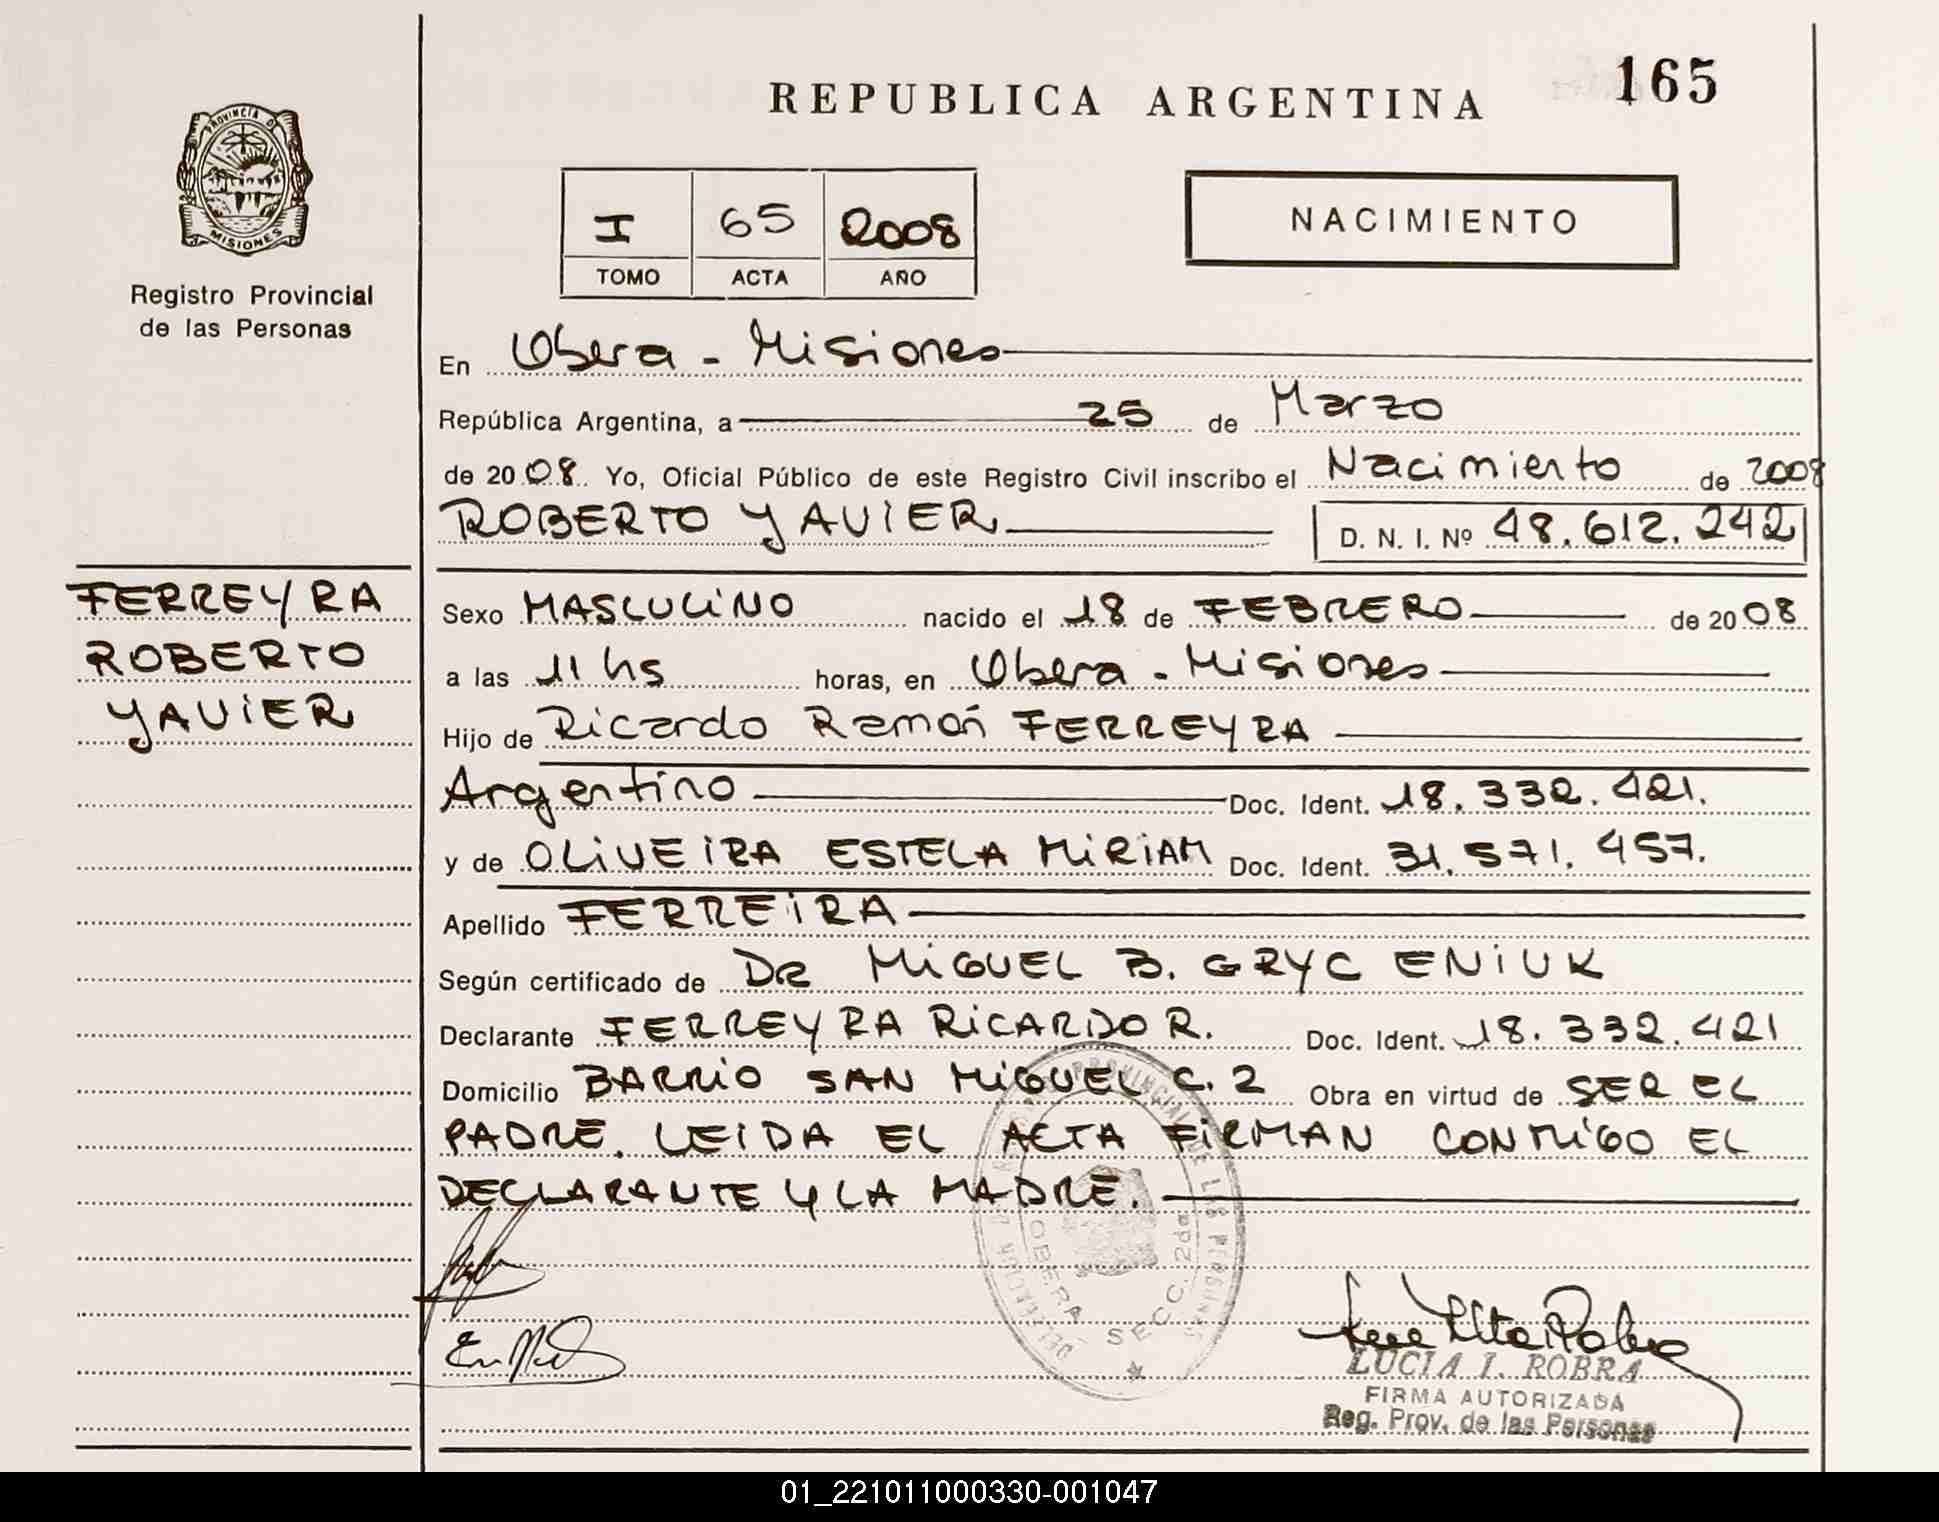 165
REPUBLICA ARGENTINA
PROVINCIA DE
MISIONES
Registro Provincial
de las Personas
I 65 2008
TOMO ACTA AÑO
NACIMIENTO
En Obera - Misiones
República Argentina, a 25 de Marzo
de 2008. Yo, Oficial Público de este Registro Civil inscribo el Nacimiento de 2008
ROBERTO YAVIER D. N. I. Nº 48.612.242
FERREYRA
ROBERTO
YAVIER
Sexo MASCULINO nacido el 18 de FEBRERO de 2008
a las 11 hs horas, en Obera - Misiones
Hijo de Ricardo Ramón FERREYRA
Argentino Doc. Ident. 18.332.421.
y de OLIVEIRA ESTELA MIRIAM Doc. Ident. 31.571.457.
Apellido FERREIRA
Según certificado de DR MIGUEL B. GRYC ENIUK
Declarante FERREYRA RICARDO R. Doc. Ident. 18.332.421
Domicilio BARRIO SAN MIGUEL C. 2 Obra en virtud de SER EL
PADRE. LEIDA EL ACTA FIRMAN CONMIGO EL
DECLARANTE Y LA MADRE.
PROVINCIAL DE LAS PERSONAS
OBERA SECC. 2da
LUCIA I. ROBRA
FIRMA AUTORIZADA
Reg. Prov. de las Personas
01_221011000330-001047